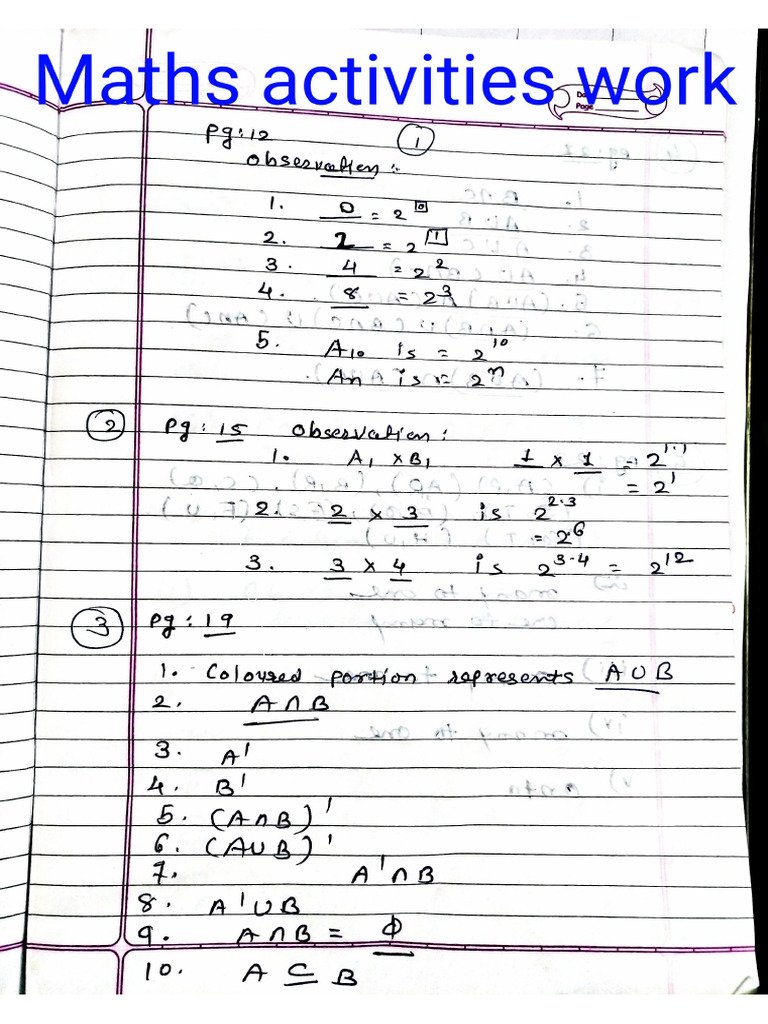 Maths activities work
Page
Pg:12 1
Observation:
1. 0 = 2 0
2. 2 = 2 1
3. 4 = 2²
4. 8 = 2³
5. A₁₀ is = 2¹⁰
An is = 2ⁿ
2 Pg: 15 Observation:
1. A₁ × B₁ 1 × 1 = 2¹·¹
= 2¹
2. 2 × 3 is 2²·³
= 2·⁶
3. 3 × 4 is 2³·⁴ = 2¹²
3 Pg: 19
1. Coloured portion represents A∪B
2. A∩B
3. A'
4. B'
5. (A∩B)'
6. (A∪B)'
7. A'∩B
8. A'∪B
9. A∩B = Φ
10. A ⊆ B